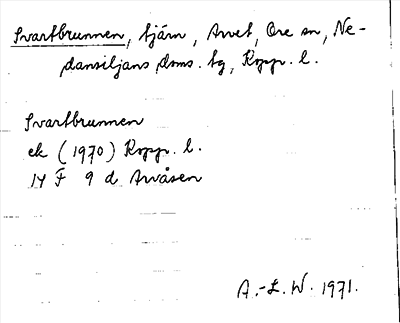 Svartbrunnen, tjärn, Arvet, Ore sn, Ne-
dansiljans doms. tg, Kopp. l.
Svartbrunnen
ek (1970) Kopp. l.
14 F 9 d Arvåsen
A.-L.W. 1971.